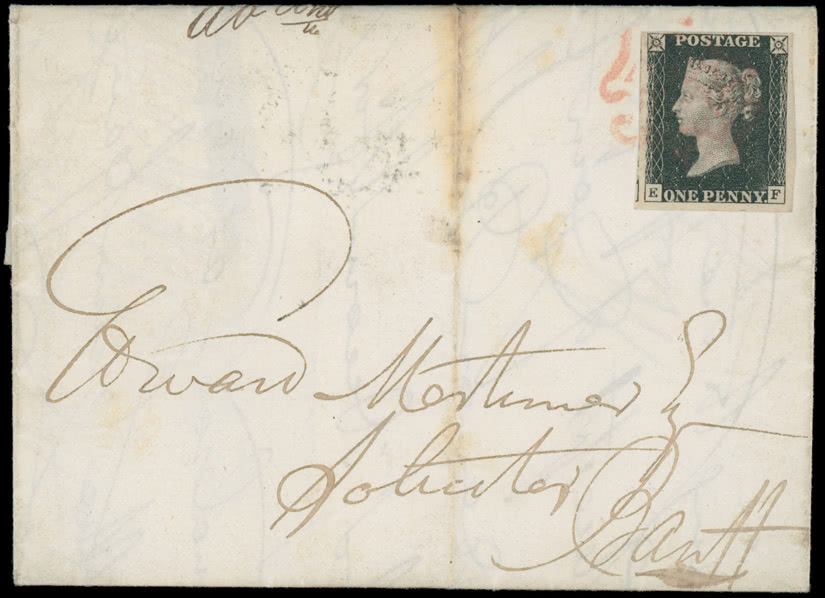 POSTAGE
E ONE PENNY F
Edward Mortimer Esq
Solicitor
Banff